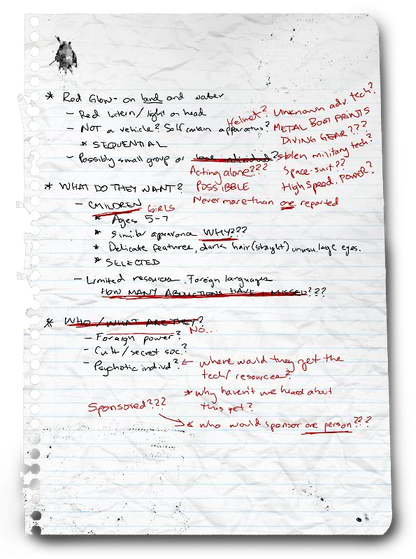 * Red Glow - on land and water
- Red lumin/light on head
- NOT a vehicle? Self contain apparatus?
* SEQUENTIAL
- Possibly small group or
Helmet?
Unknown adv. tech?
METAL BOOT PRINTS
DIVING GEAR???
stolen military tech?
Space-suit??
High Speed. POWER?
Acting alone???
POSSIBLE
Never more than one reported
* WHAT DO THEY WANT?
- CHILDREN GIRLS
* Ages 5-7
* Similar appearance WHY???
* Delicate features, dark hair (straight) unusu. lag eyes.
* SELECTED
- Limited resources. Foreign languages
HOW MANY ABDUCTIONS HAVE I MISSED???
* WHO/WHAT ARE THEY?
NO..
- Foreign power?
- Cult/secret soc?
- Psychotic individ?
where would they get the
tech/resources?
* why haven't we heard about
this yet?
Sponsored???
* who would sponsor one person???